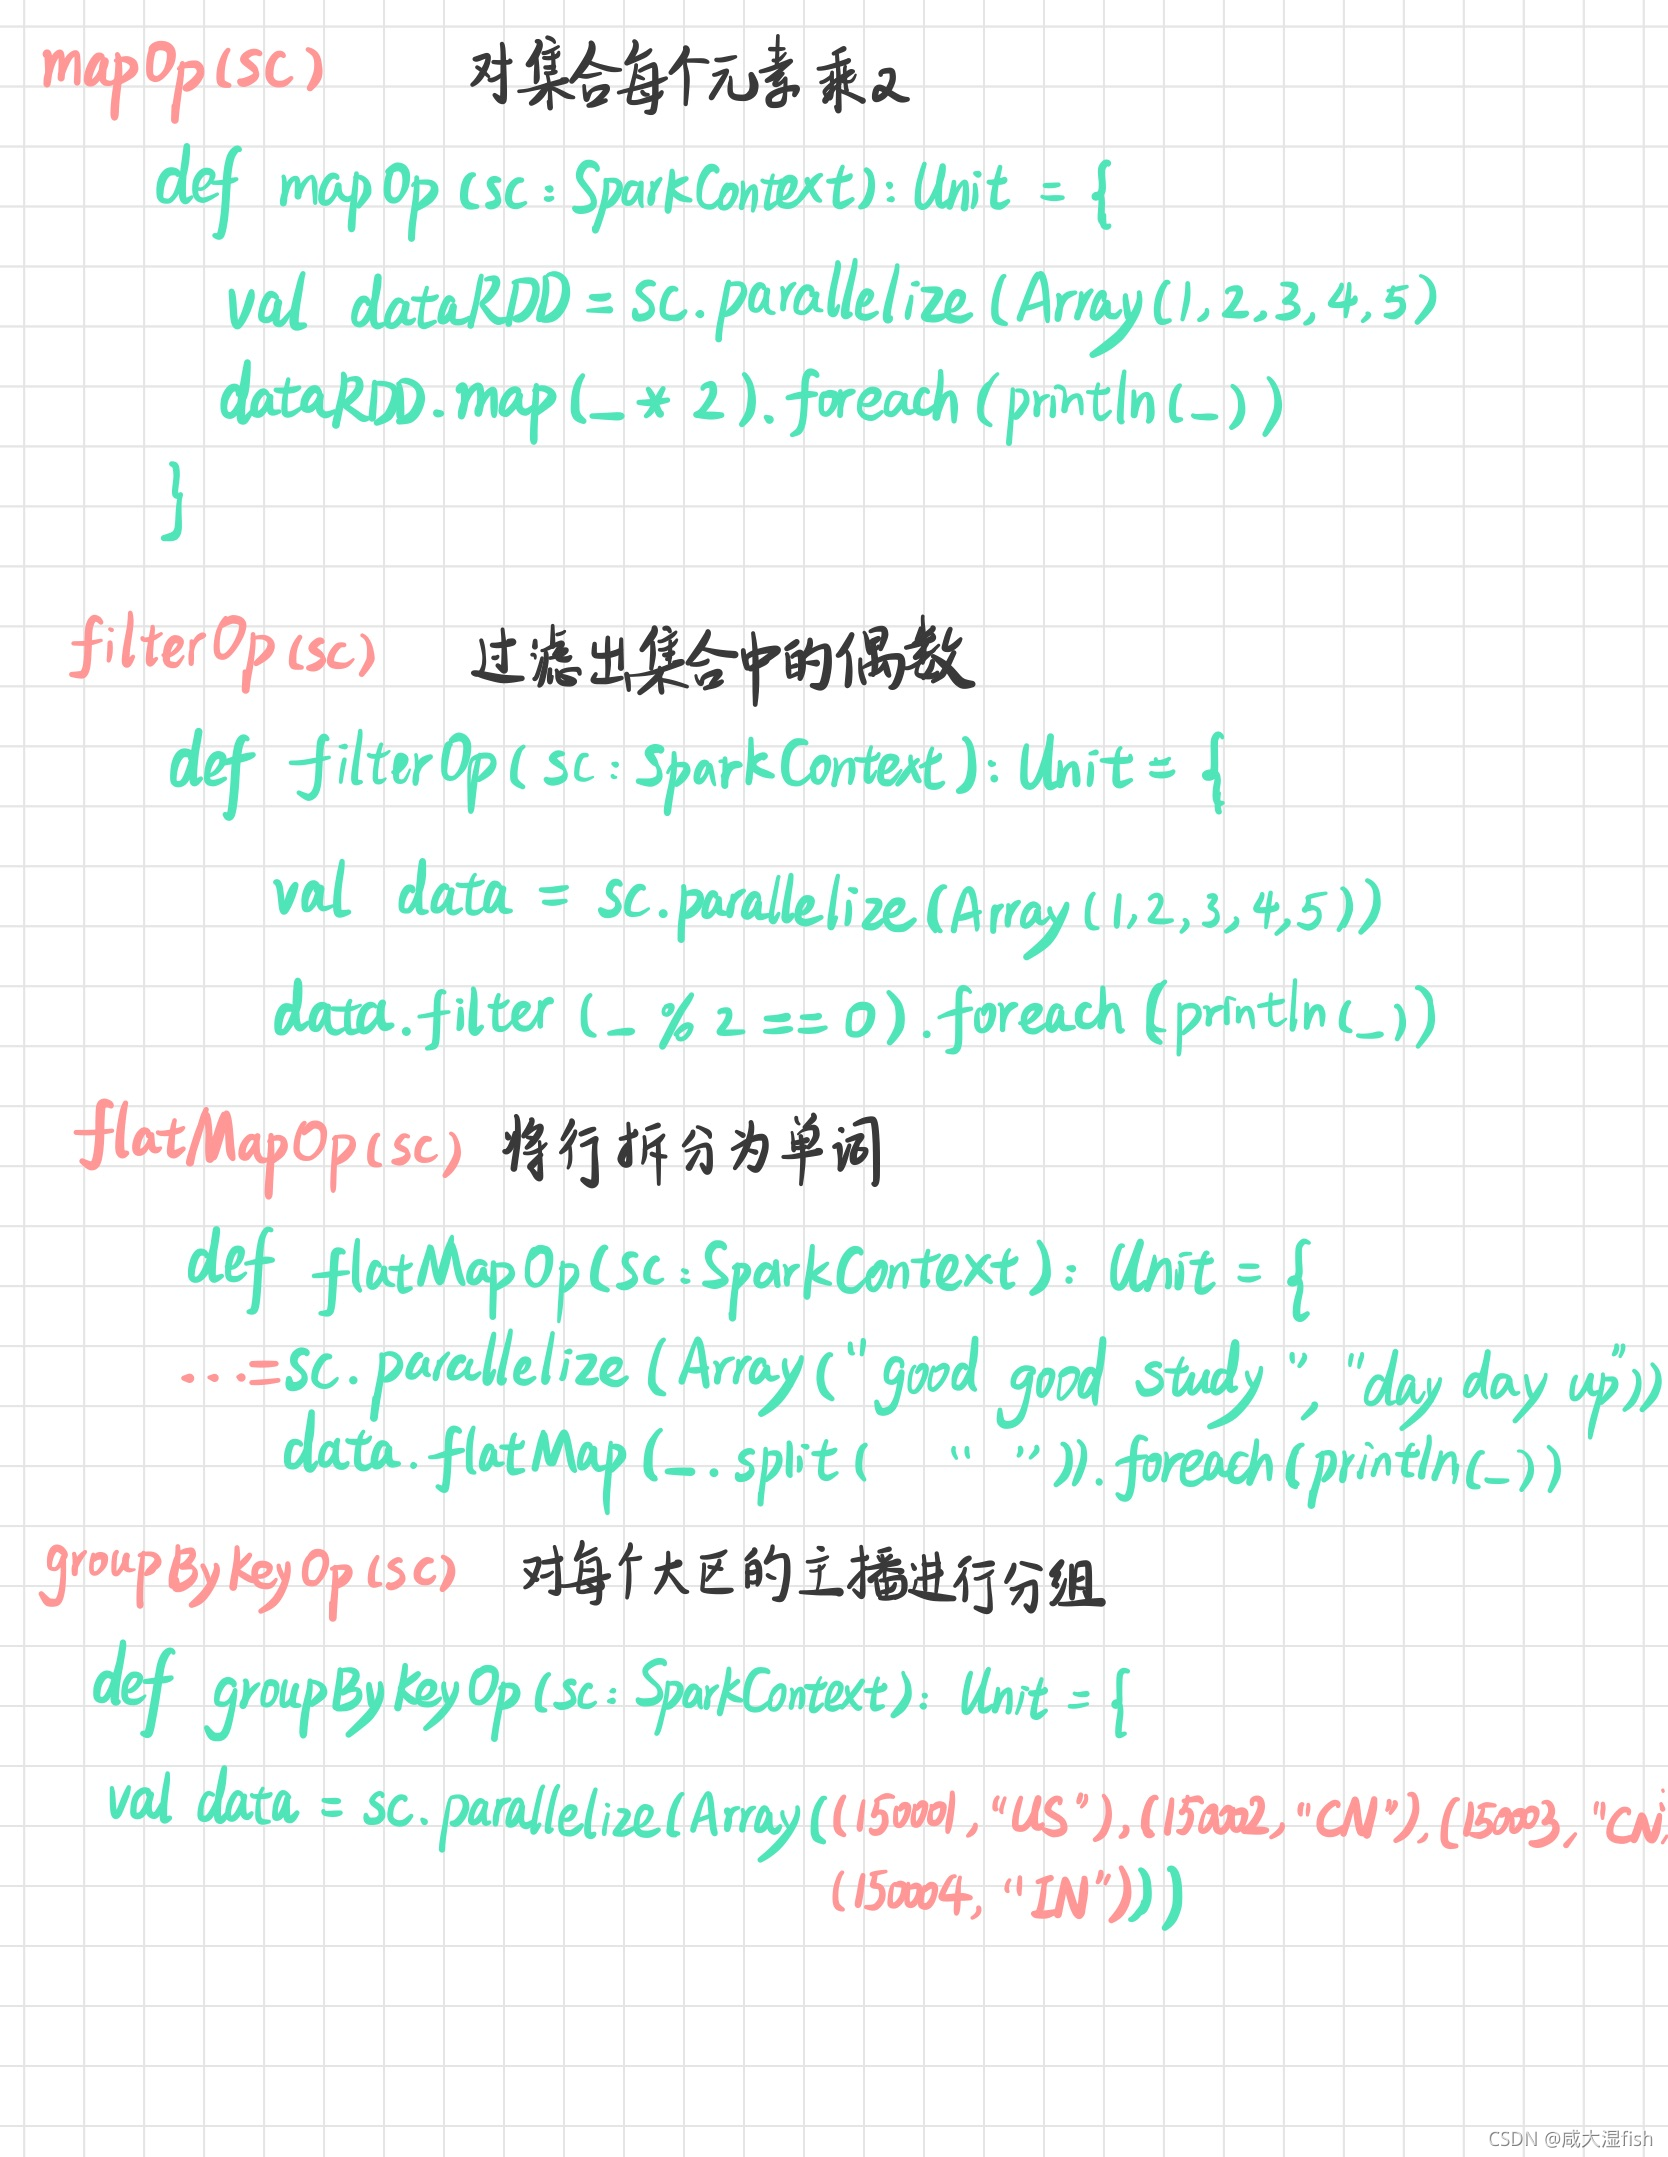 mapOp(sc) 对集合每个元素乘2
def mapOp(sc:SparkContext):Unit = {
val dataRDD = sc.parallelize(Array(1,2,3,4,5)
dataRDD.map(_ * 2).foreach(println(_))
}
filterOp(sc) 过滤出集合中的偶数
def filterOp(sc:SparkContext):Unit = {
val data = sc.parallelize(Array(1,2,3,4,5))
data.filter(_ % 2 == 0).foreach(println(_))
flatMapOp(sc) 将行拆分为单词
def flatMapOp(sc:SparkContext): Unit = {
...=sc.parallelize(Array("good good study","day day up"))
data.flatMap(_.split(" ")).foreach(println(_))
groupByKeyOp(sc) 对每个大区的主播进行分组
def groupByKeyOp(sc:SparkContext): Unit = {
val data = sc.parallelize(Array((150001,"US"),(150002,"CN"),(150003,"CN
(150004,"IN")))
CSDN @咸大湿fish